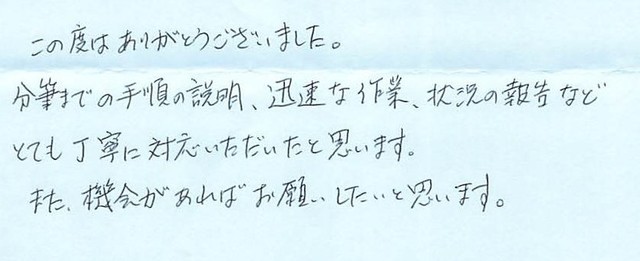 この度はありがとうございました。
分筆までの手順の説明、迅速な作業、状況の報告など
とても丁寧に対応いただいたと思います。
また、機会があればお願いしたいと思います。